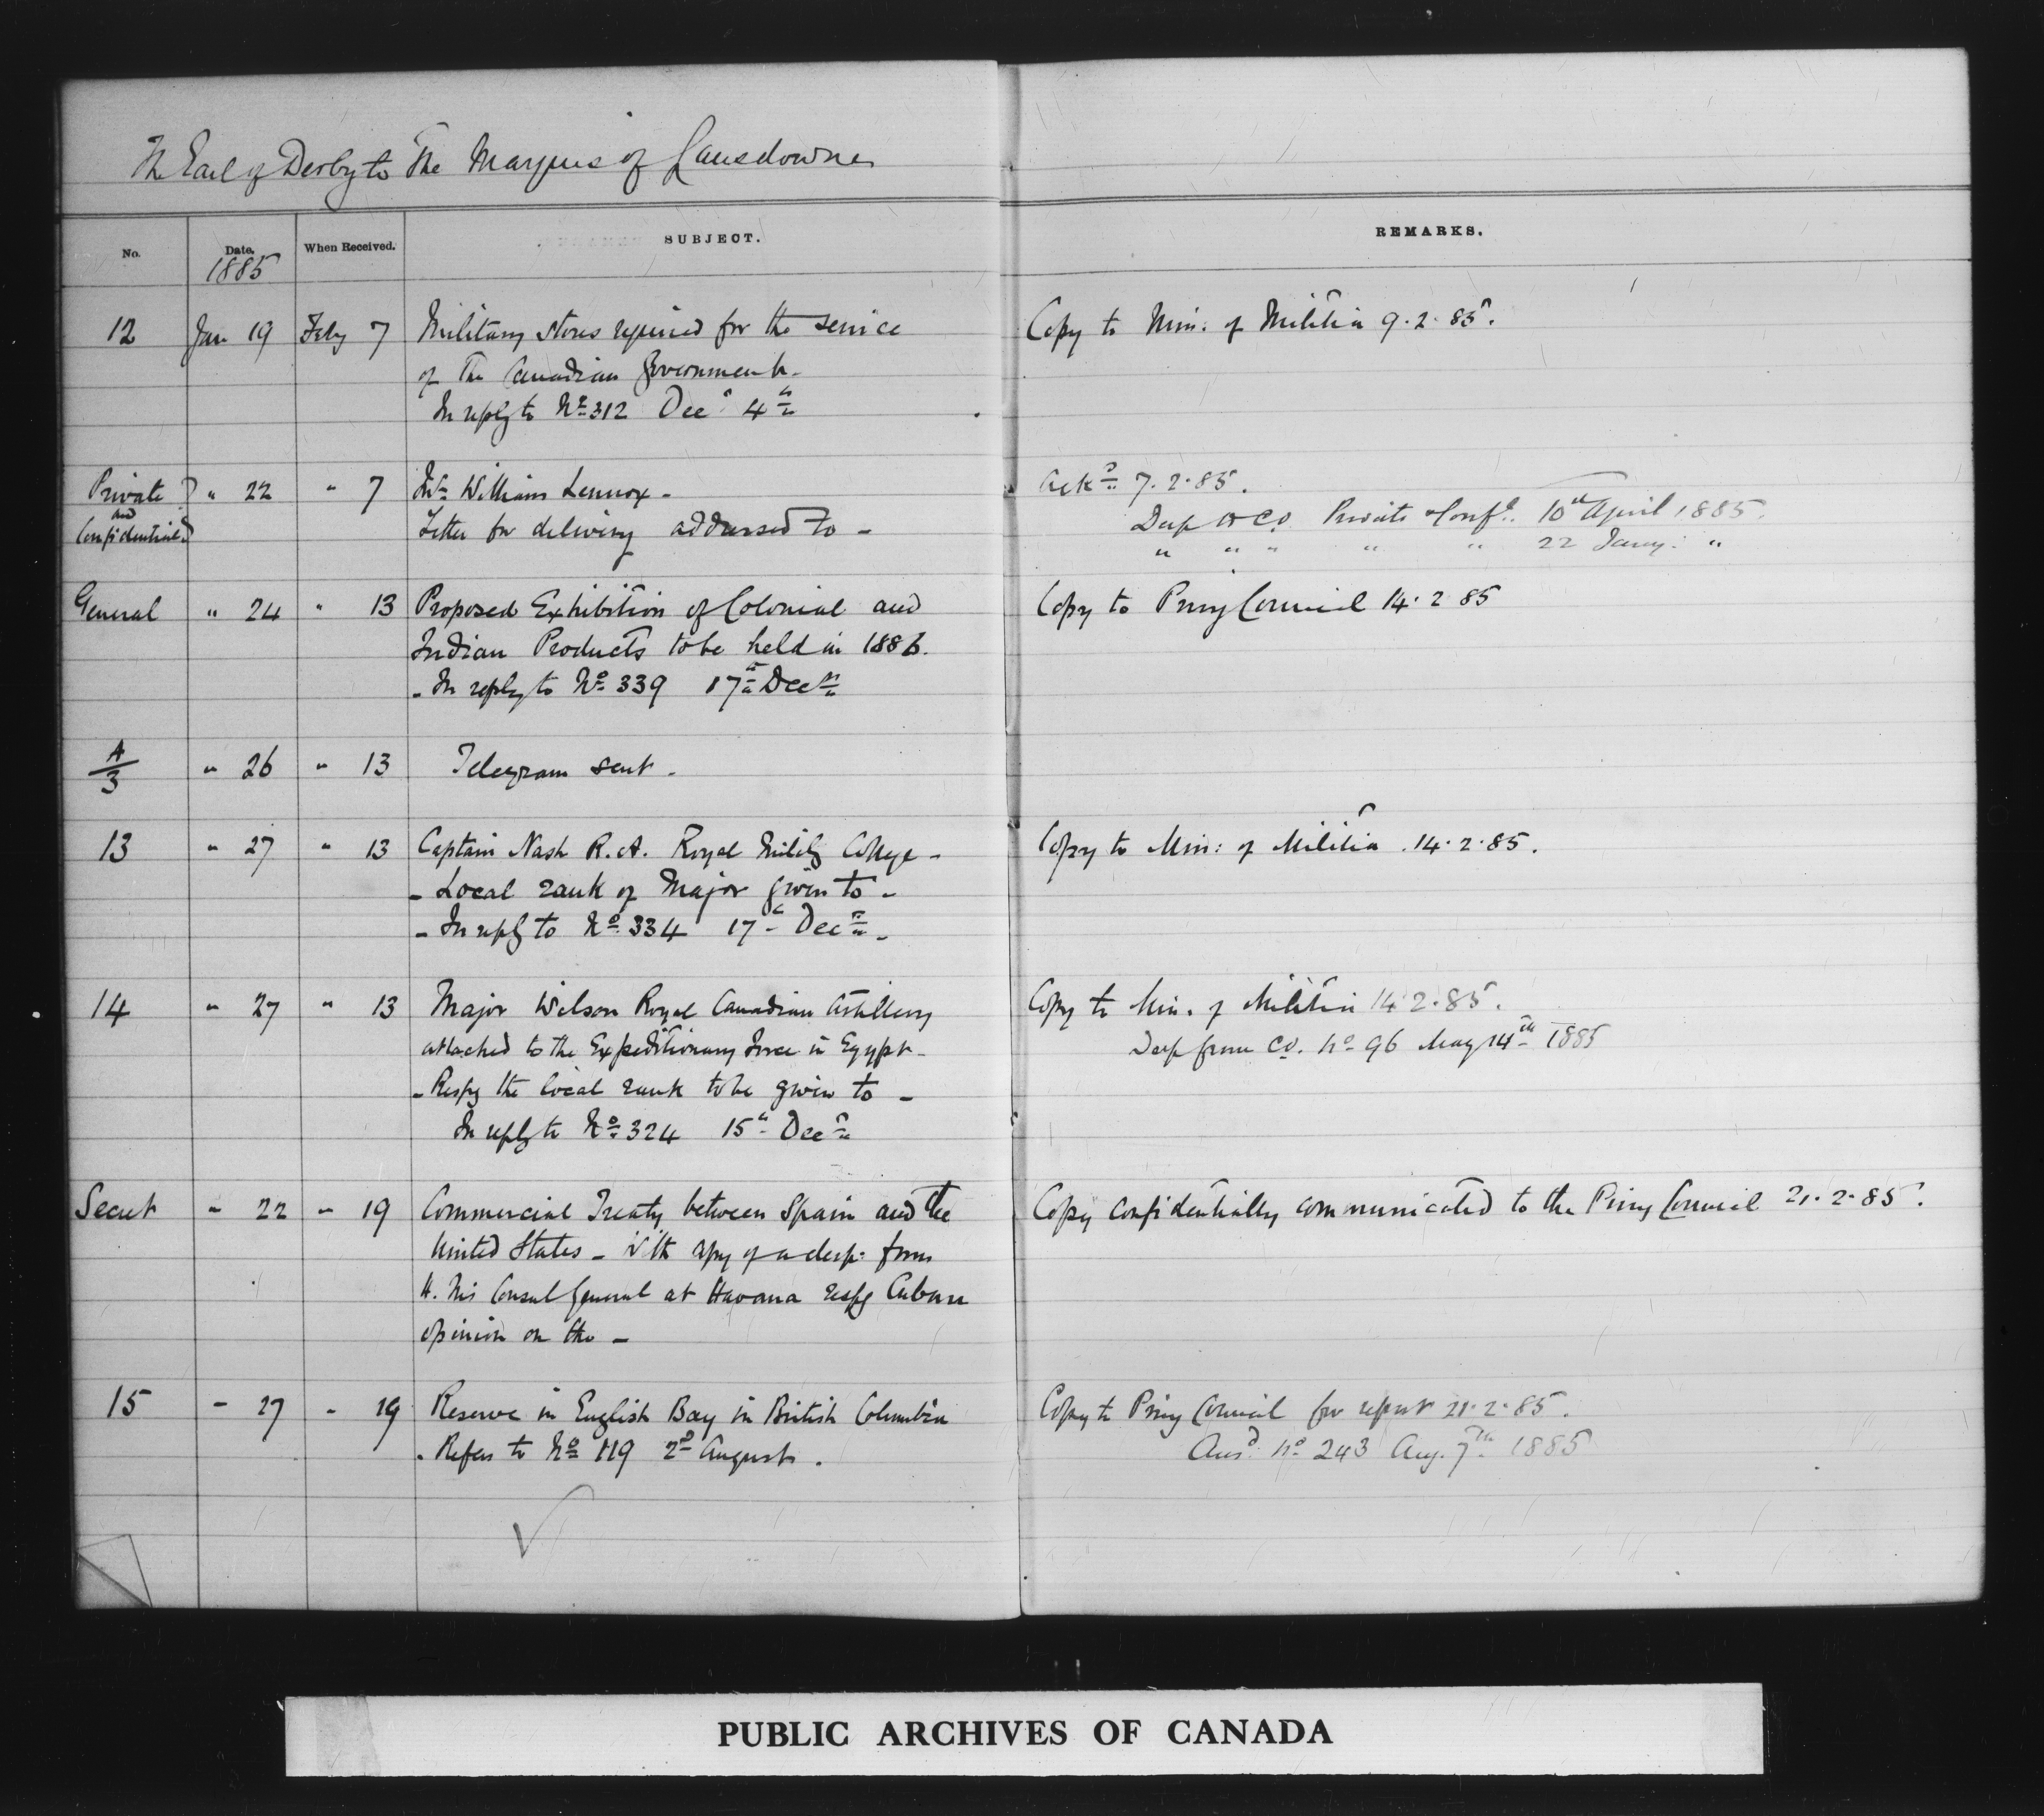 The Earl of Derby to The Marquis of Lansdowne
No. Date. When Received. SUBJECT. REMARKS.
1885
12 Jan 19 Feby 7 Military Stores required for the service Copy to Min: of Militia 9.2.85.
of The Canadian Government.
In reply to No 312 Decr 4th
Private " 22 " 7 Mr William Lennox - Ackd 7.2.85.
and
Confidential Letter for delivery addressed to - Desp Private & Confl. 10th April 1885.
" " " " " 22 Jany: "
General " 24 " 13 Proposed Exhibition of Colonial and Copy to Privy Council 14.2 85
Indian Products to be held in 1886.
- In reply to No 339 17th Decr
A/3 " 26 " 13 Telegram sent -
13 " 27 " 13 Captain Nash R.A. Royal Mility College - Copy to Min: of Militia .14.2.85.
- Local rank of Major given to -
- In reply to No 334 17th Decr -
14 " 27 " 13 Major Wilson Royal Canadian Artillery Copy to Min. of Militia 14.2.85.
attached to the Expeditionary Force in Egypt - Desp from CO. No 96 May 14th 1885
- Respg the local rank to be given to -
In reply to No 324 15th Decr
Secret " 22 " 19 Commercial Treaty between Spain and the Copy confidentially communicated to the Privy Council 21.2.85.
United States - With copy of a desp: from
H. M's Consul General at Havana respg Cuban
opinion on the -
15 " 27 " 19 Reserve in English Bay in British Columbia Copy to Privy Council for report 21.2.85.
- Refers to No 119 2d August. Ansd: No 243 Aug. 7th 1885
PUBLIC ARCHIVES OF CANADA